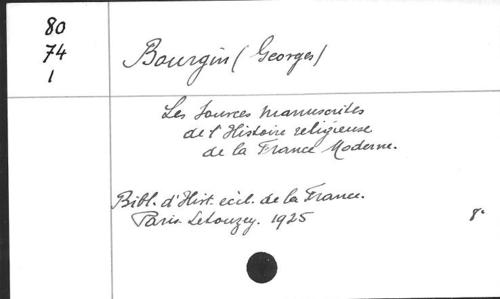 80
74
1
Bourgin (Georges)
Les Sources manuscrites
de l'Histoire religieuse
de la France Moderne.
Bibl. d'Hist. eccl. de la France.
Paris. Letouzey. 1925
8°